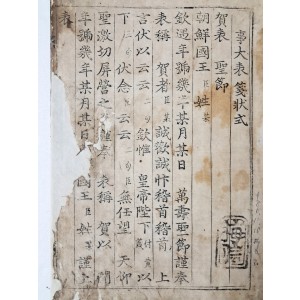 事大表箋狀式
賀表 聖節
朝鮮國王臣姓某
欽遇年號幾年某月某日 萬壽聖節謹奉
表稱 賀者臣誠歡誠忭稽首稽首上
言伏以云云 欽惟 皇帝陛下
下 伏念云云 臣無任望 天仰
聖激切屏營之 謹奉 表稱 賀以 聞
年號幾年某月某日 國王臣姓某謹
表